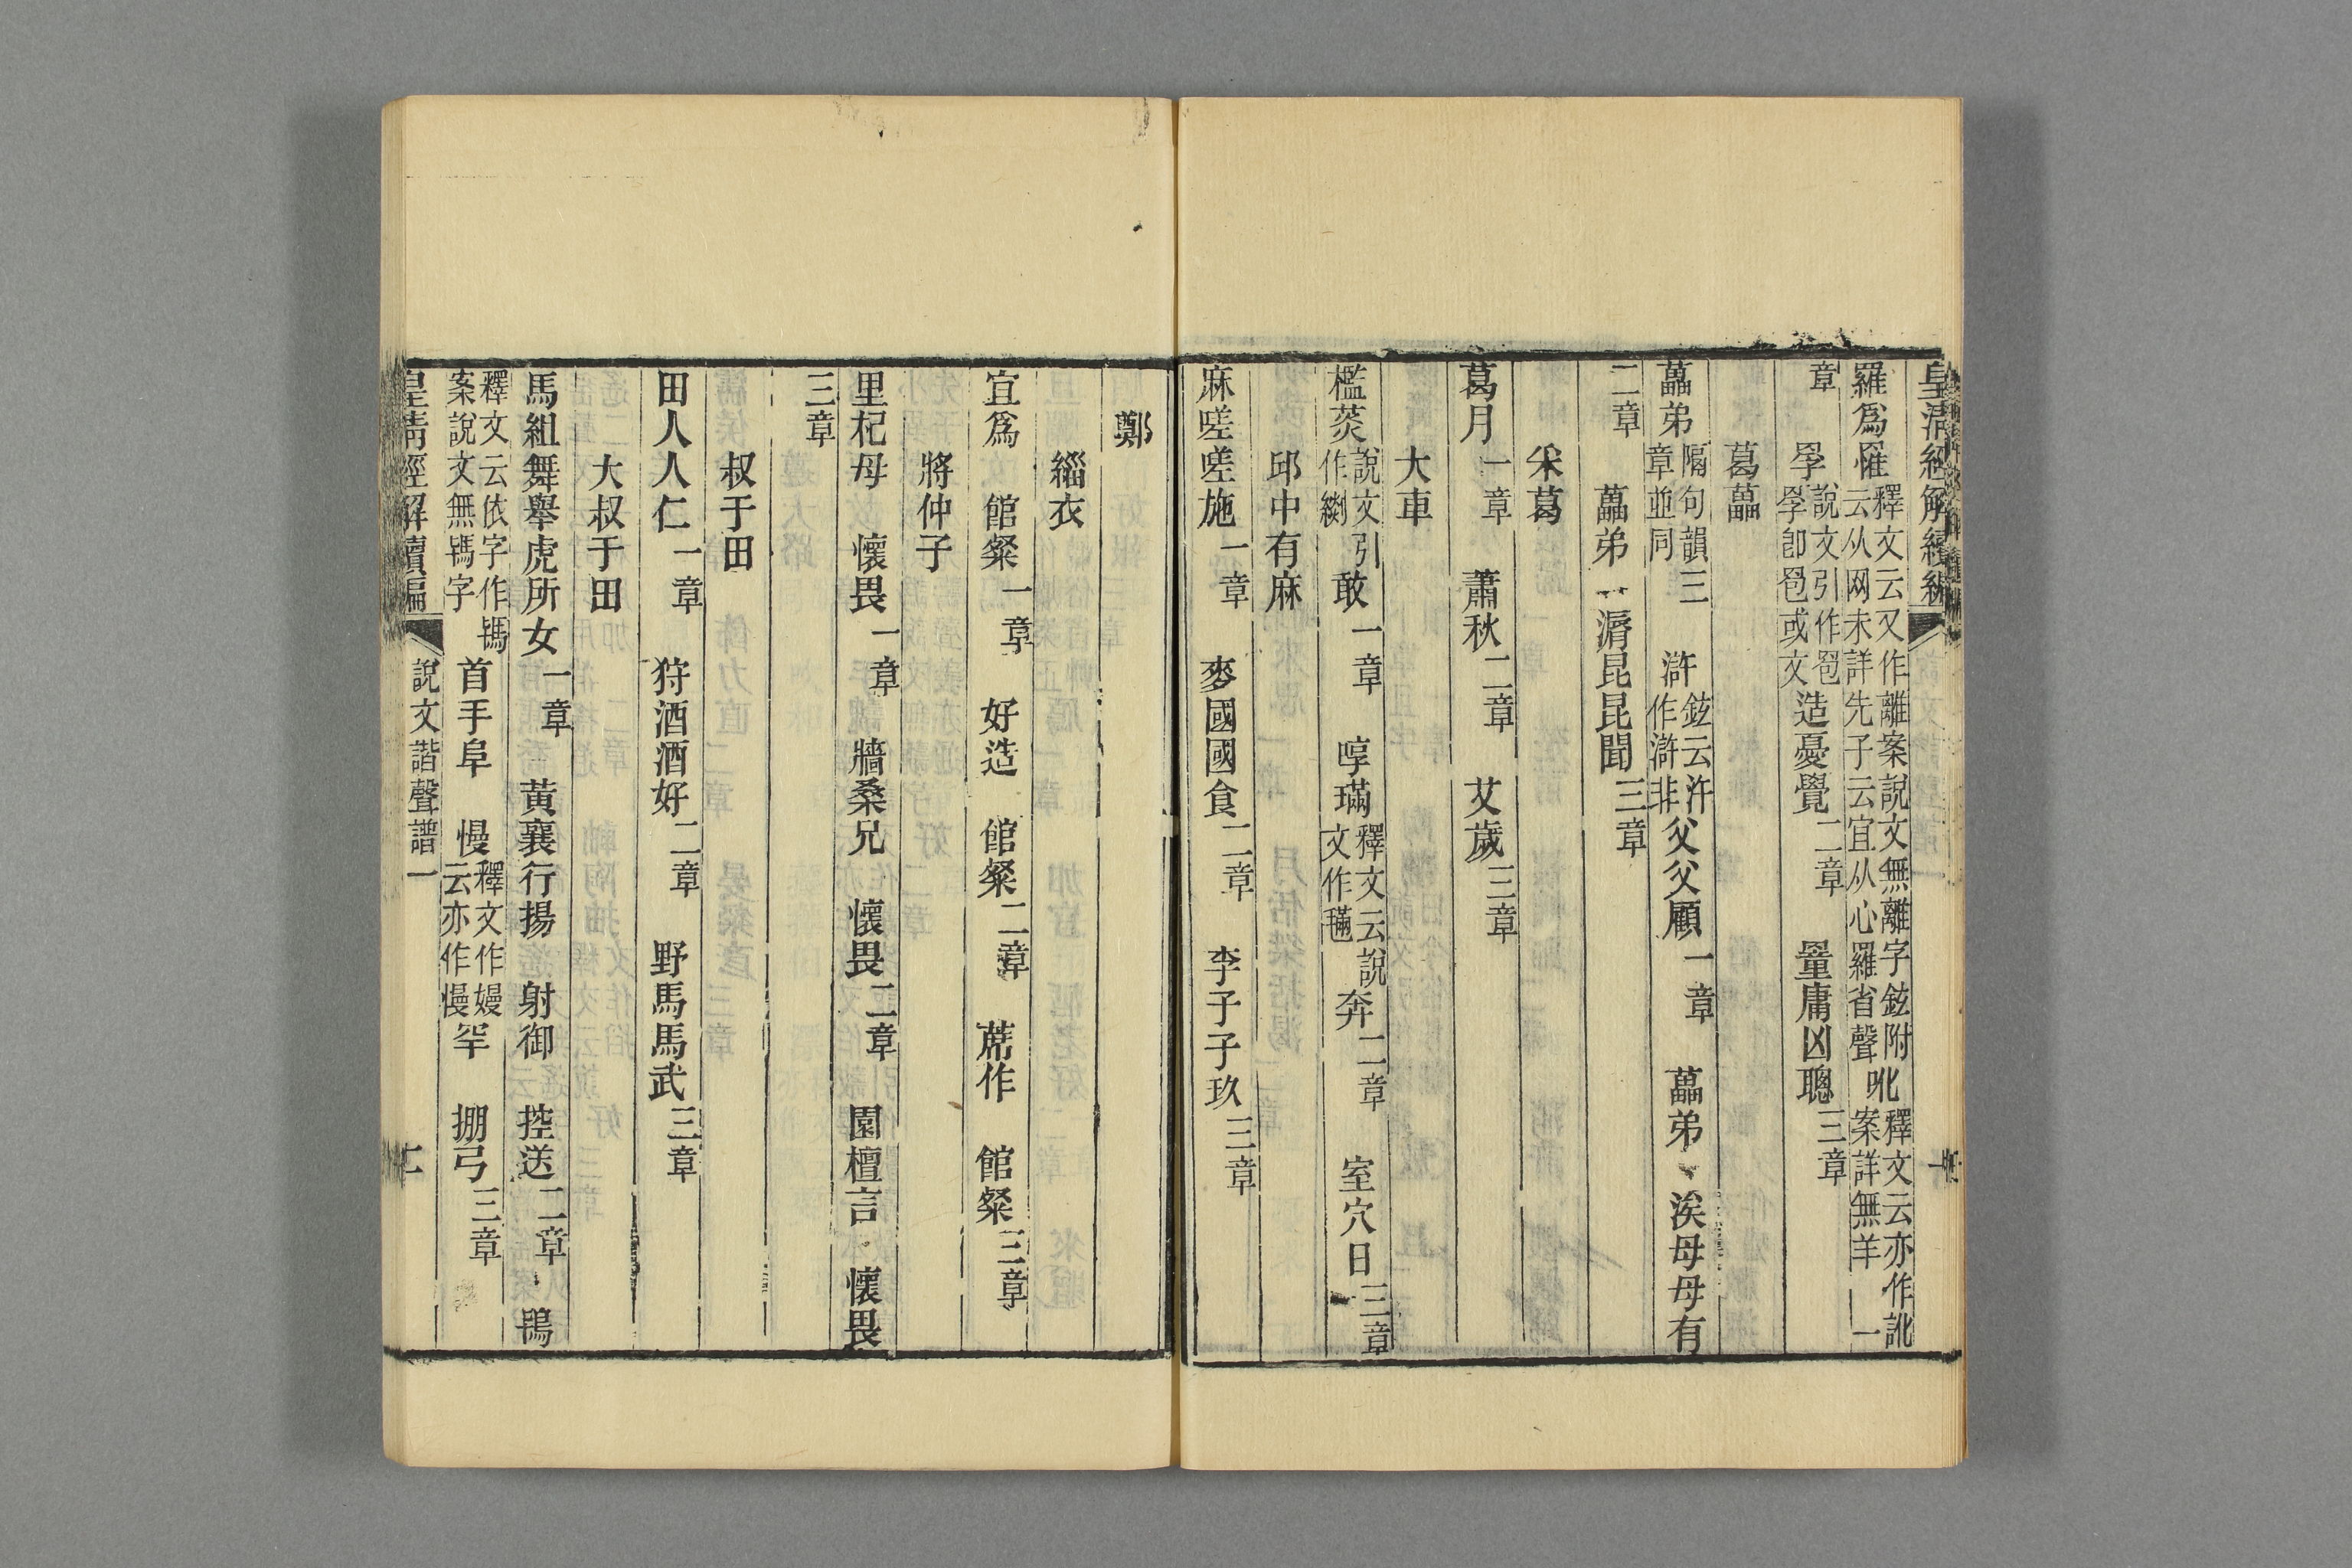 皇清經解續編
羅爲罹釋文云又作離案說文無離字鉉附云从网未詳先子云宜从心羅省聲吪釋文云亦作訛案詳無羊一
章
罦說文引作雹罦卽雹或文造憂覺二章 罿庸凶聰三章
葛藟
藟弟隔句韻三章並同 滸鉉云汻作滸非父父顧一章 藟弟 涘母母有
二章
藟弟 漘昆昆聞三章
采葛
葛月一章 蕭秋二章 艾歲三章
大車
檻菼說文引作緂敢一章 啍璊釋文云說文作𣯩奔二章 室穴日三章
邱中有麻
麻嗟嗟施一章 麥國國食二章 李子子玖三章
鄭
緇衣
宜爲 館粲一章 好造 館粲二章 蓆作 館粲三章
將仲子
里杞母 懷畏一章 牆桑兄 懷畏二章 園檀言 懷畏
三章
叔于田
田人人仁一章 狩酒酒好二章 野馬馬武三章
大叔于田
馬組舞舉虎所女一章 黃襄行揚 射御 控送二章 鴇
釋文云依字作䮀案說文無䮀字首手阜 慢釋文作嫚云亦作慢罕 掤弓三章
皇清經解續編 說文諧聲譜一